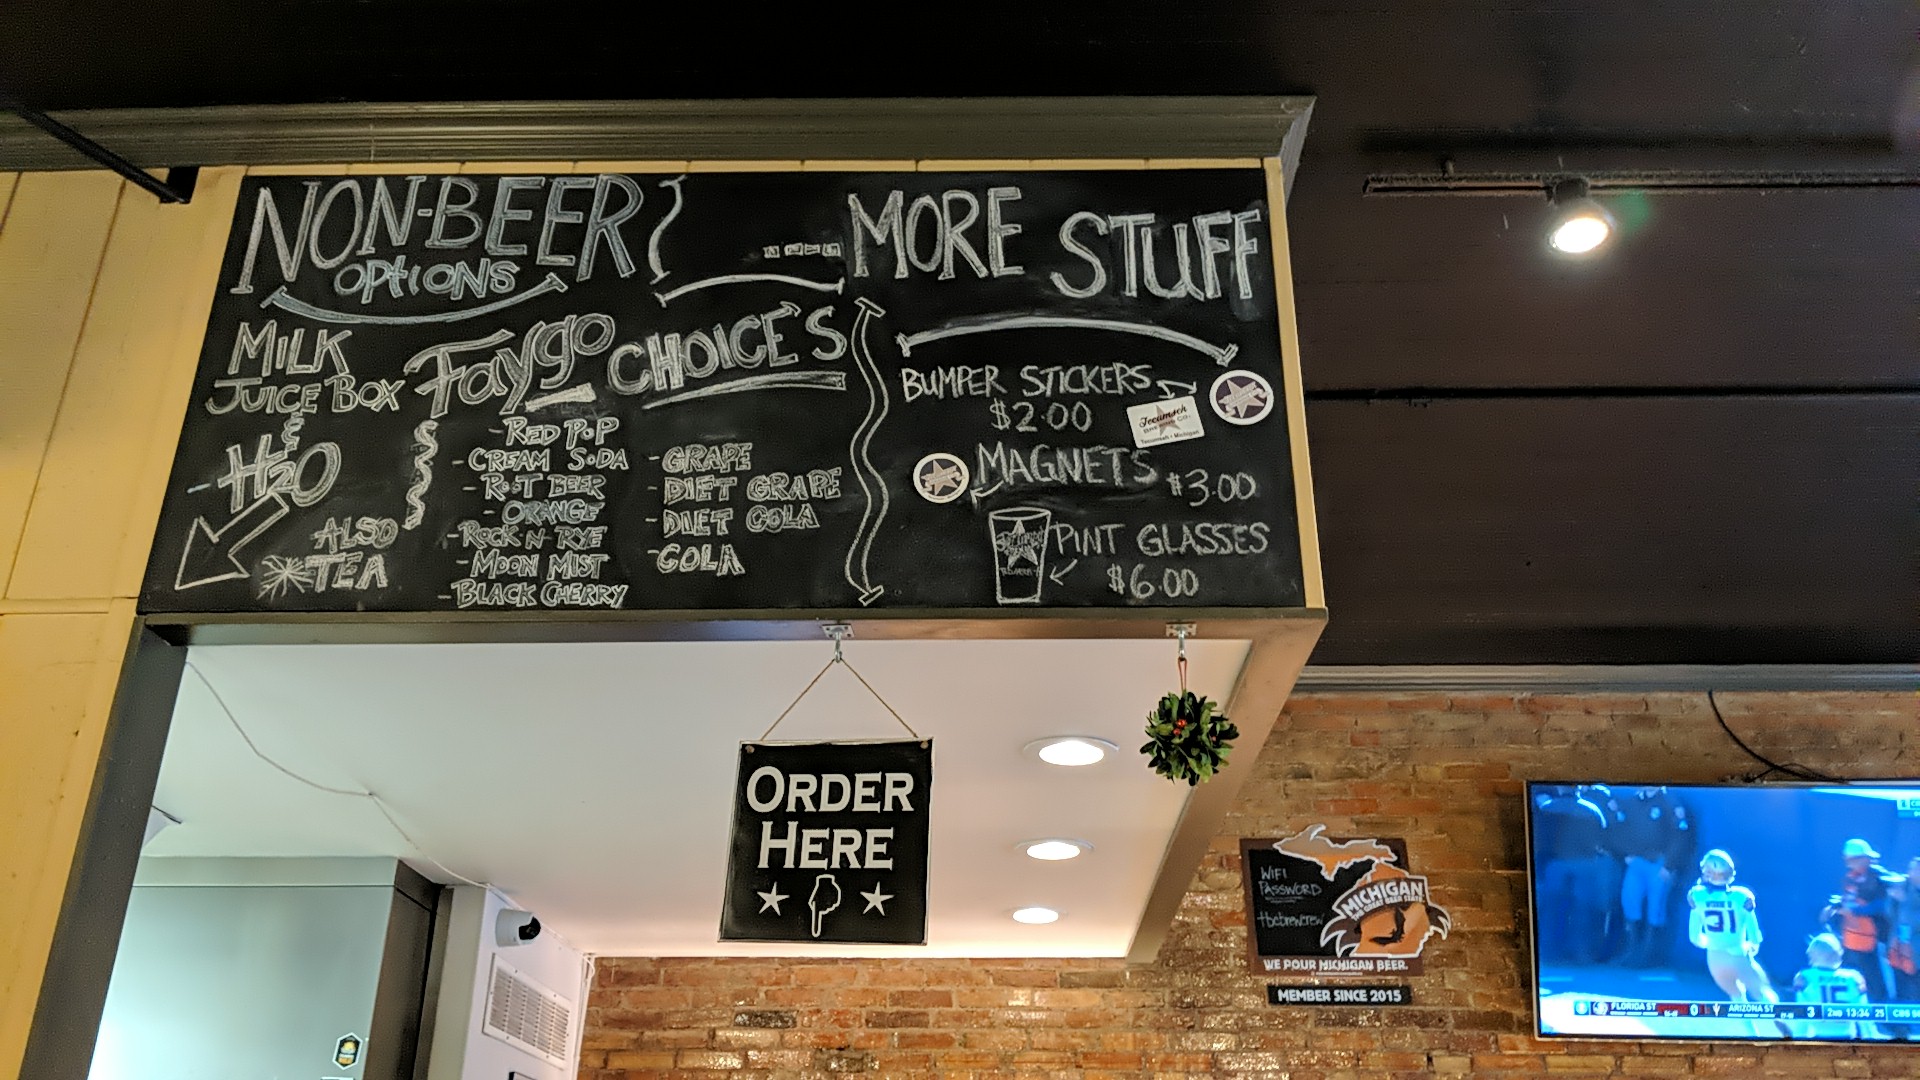 NON-BEER
OPTIONS
MORE STUFF
MILK
JUICE BOX
&
H2O
ALSO
TEA
Faygo CHOICE'S
- RED POP
- CREAM SODA
- ROOT BEER
- ORANGE
- ROCK-N-RYE
- MOON MIST
- BLACK CHERRY
- GRAPE
- DIET GRAPE
- DIET COLA
- COLA
BUMPER STICKERS
$2.00
Tecumseh
BREWING CO.
Tecumseh • Michigan
MAGNETS $3.00
PINT GLASSES
$6.00
ORDER
HERE
WIFI
PASSWORD
tbcbrewcrew
MICHIGAN
THE GREAT BEER STATE
WE POUR MICHIGAN BEER.
MEMBER SINCE 2015
31
15
FLORIDA ST 0 ARIZONA ST 3 2ND 13:34 25